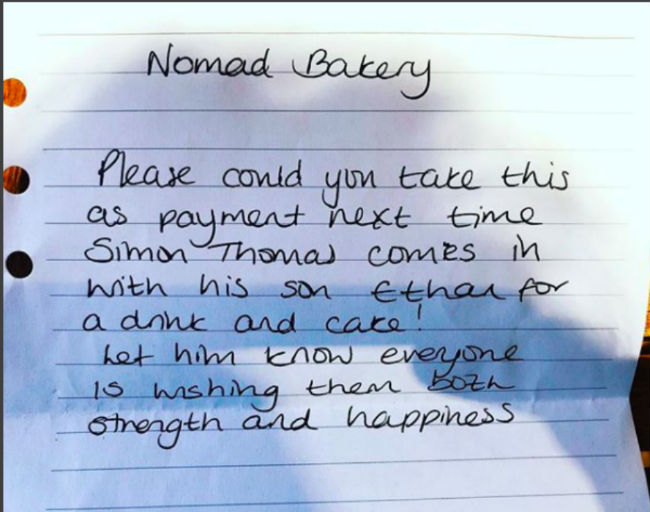 Nomad Bakery
Please could you take this
as payment next time
Simon Thomas comes in
with his son Ethan for
a drink and cake!
Let him know everyone
is wishing them both
strength and happiness